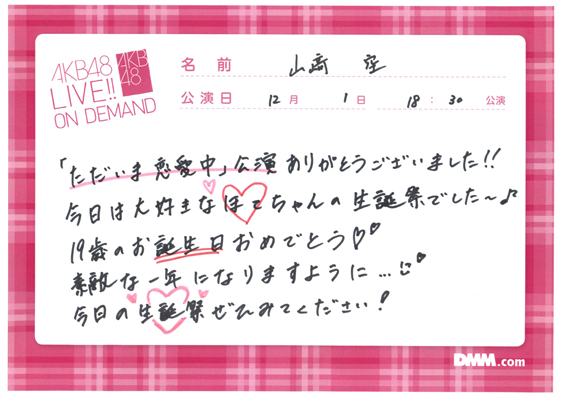 AKB48
LIVE!!
ON DEMAND
AKB
48
名前 山﨑 空
公演日 12月 1日 18:30 公演
「ただいま恋愛中」公演ありがとうございました!!
今日は大好きなほてちゃんの生誕祭でした〜♪
19歳のお誕生日おめでとう♡♡
素敵な一年になりますように…
今日の生誕祭ぜひみてください!
DMM.com